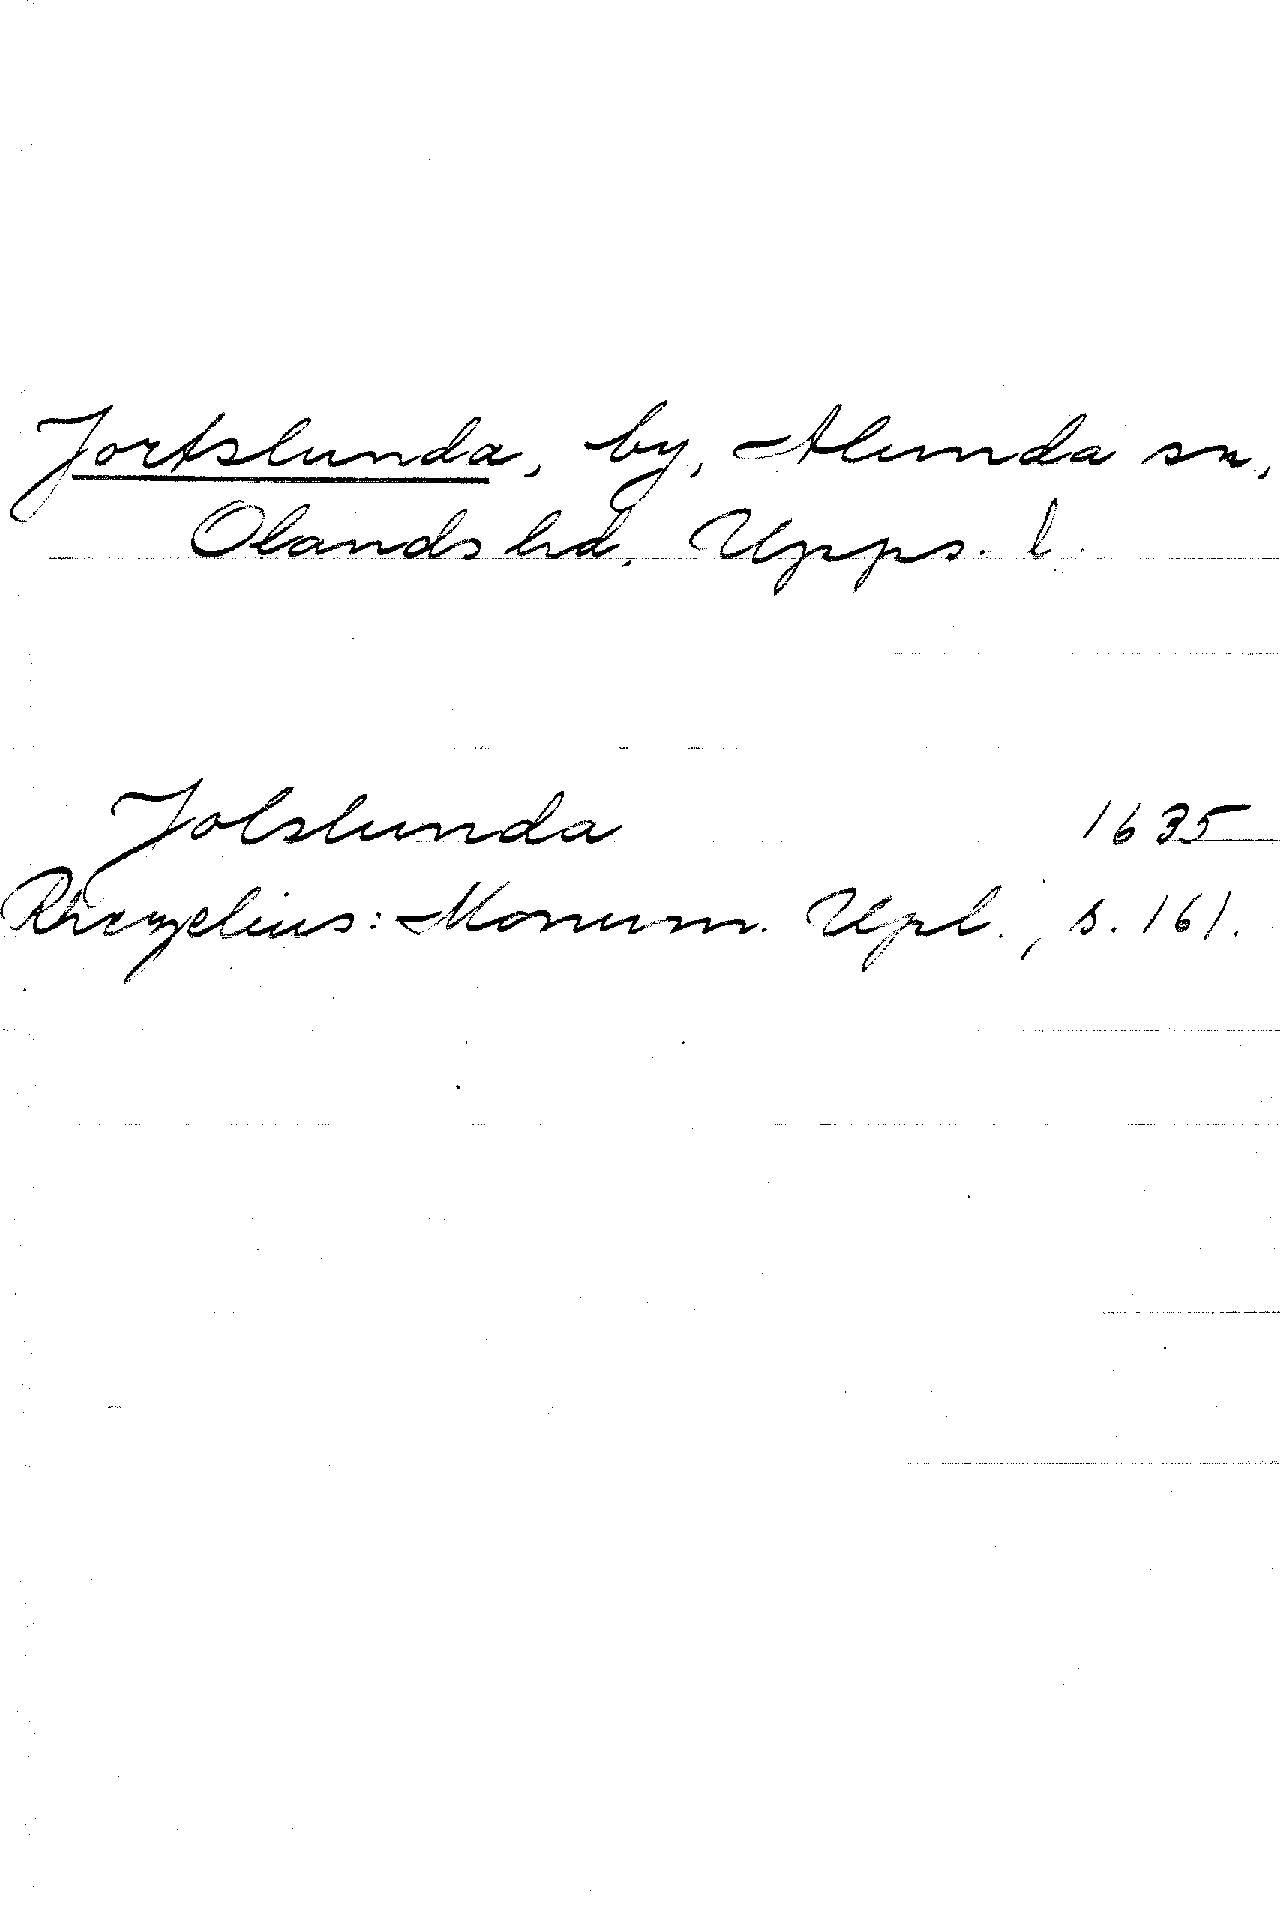 Jortslunda, by, Alunda sn,
Olands hd, Upps. l.
Jolslunda 1635
Rhezelius: Monum. Upl., s. 161.